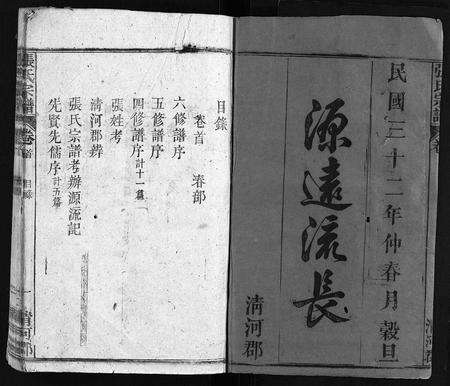 張氏宗譜
民國三十二年仲春月穀旦
源遠流長
清河郡
清河郡
目錄
卷首 春部
六修譜序
五修譜序
四修譜序計十一篇
張姓考
清河郡辨
張氏宗譜考辦源流記
先賢先儒序計五篇
張氏宗譜 卷首 目錄 一 清河郡